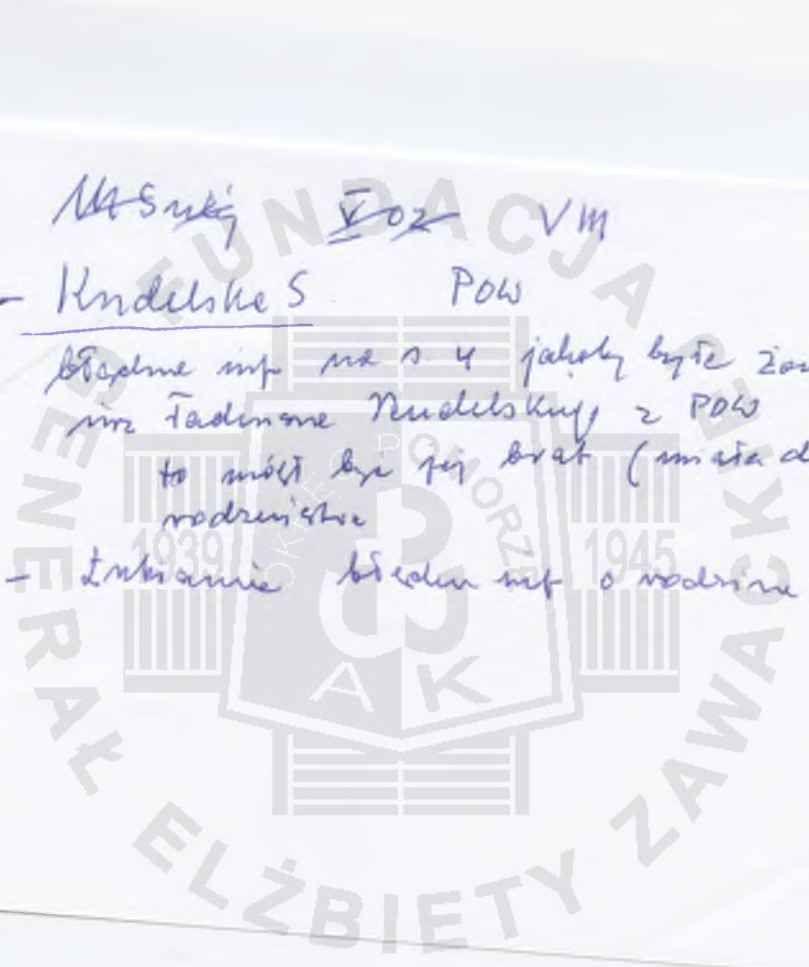 V 02 VIII
- Kudelska S POW
błędne inf na s 4 jakoby była żo
inż Tadeusza Kudelskiego z POW
to mógł być jej brat (miała d
rodzeństwa
- błędne inf o rodzinie
FUNDACJA GENERAŁ ELŻBIETY ZAWACKIEJ
OKRĘG POMORZE
1939 1945
AK